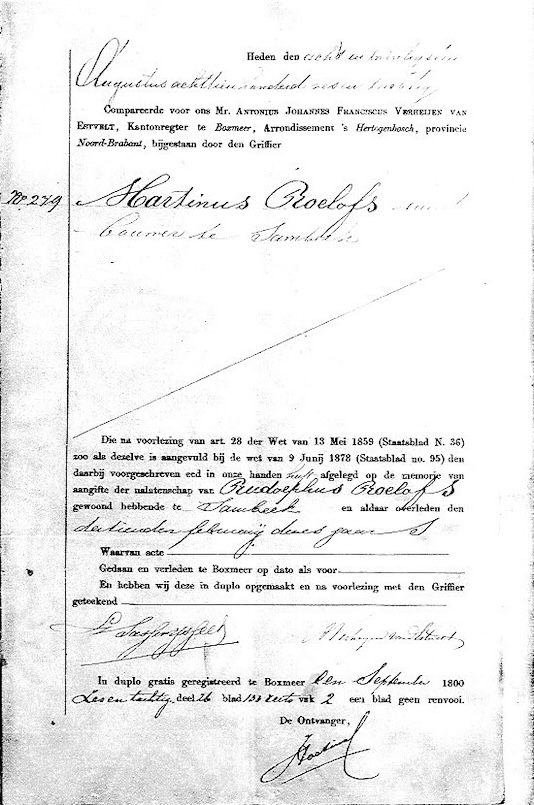 Heden den acht en twintigsten
Augustus achttienhonderd zes en tachtig
Compareerde voor ons Mr. Antonius Johannes Franciscus Verheijen van
Estvelt, Kantonregter te Boxmeer, Arrondissement 's Hertogenbosch, provincie
Noord-Brabant, bijgestaan door den Griffier
No. 279
Martinus Roelofs
bouwer te Sambeek
Die na voorlezing van art. 28 der Wet van 13 Mei 1859 (Staatsblad N. 36)
zoo als dezelve is aangevuld bij de wet van 9 Junij 1878 (Staatsblad no. 95) den
daarbij voorgeschreven eed in onze handen heeft afgelegd op de memorie van
aangifte der nalatenschap van Rudolphus Roelofs
gewoond hebbende te Sambeek en aldaar overleden den
dertienden februarij dezes jaars
Waarvan acte
Gedaan en verleden te Boxmeer op dato als voor.
En hebben wij deze in duplo opgemaakt en na voorlezing met den Griffier
geteekend
In duplo gratis geregistreerd te Boxmeer den September 1800
Zes en tachtig deel 26 blad 133 recto vak 2 een blad geen renvooi.
De Ontvanger,